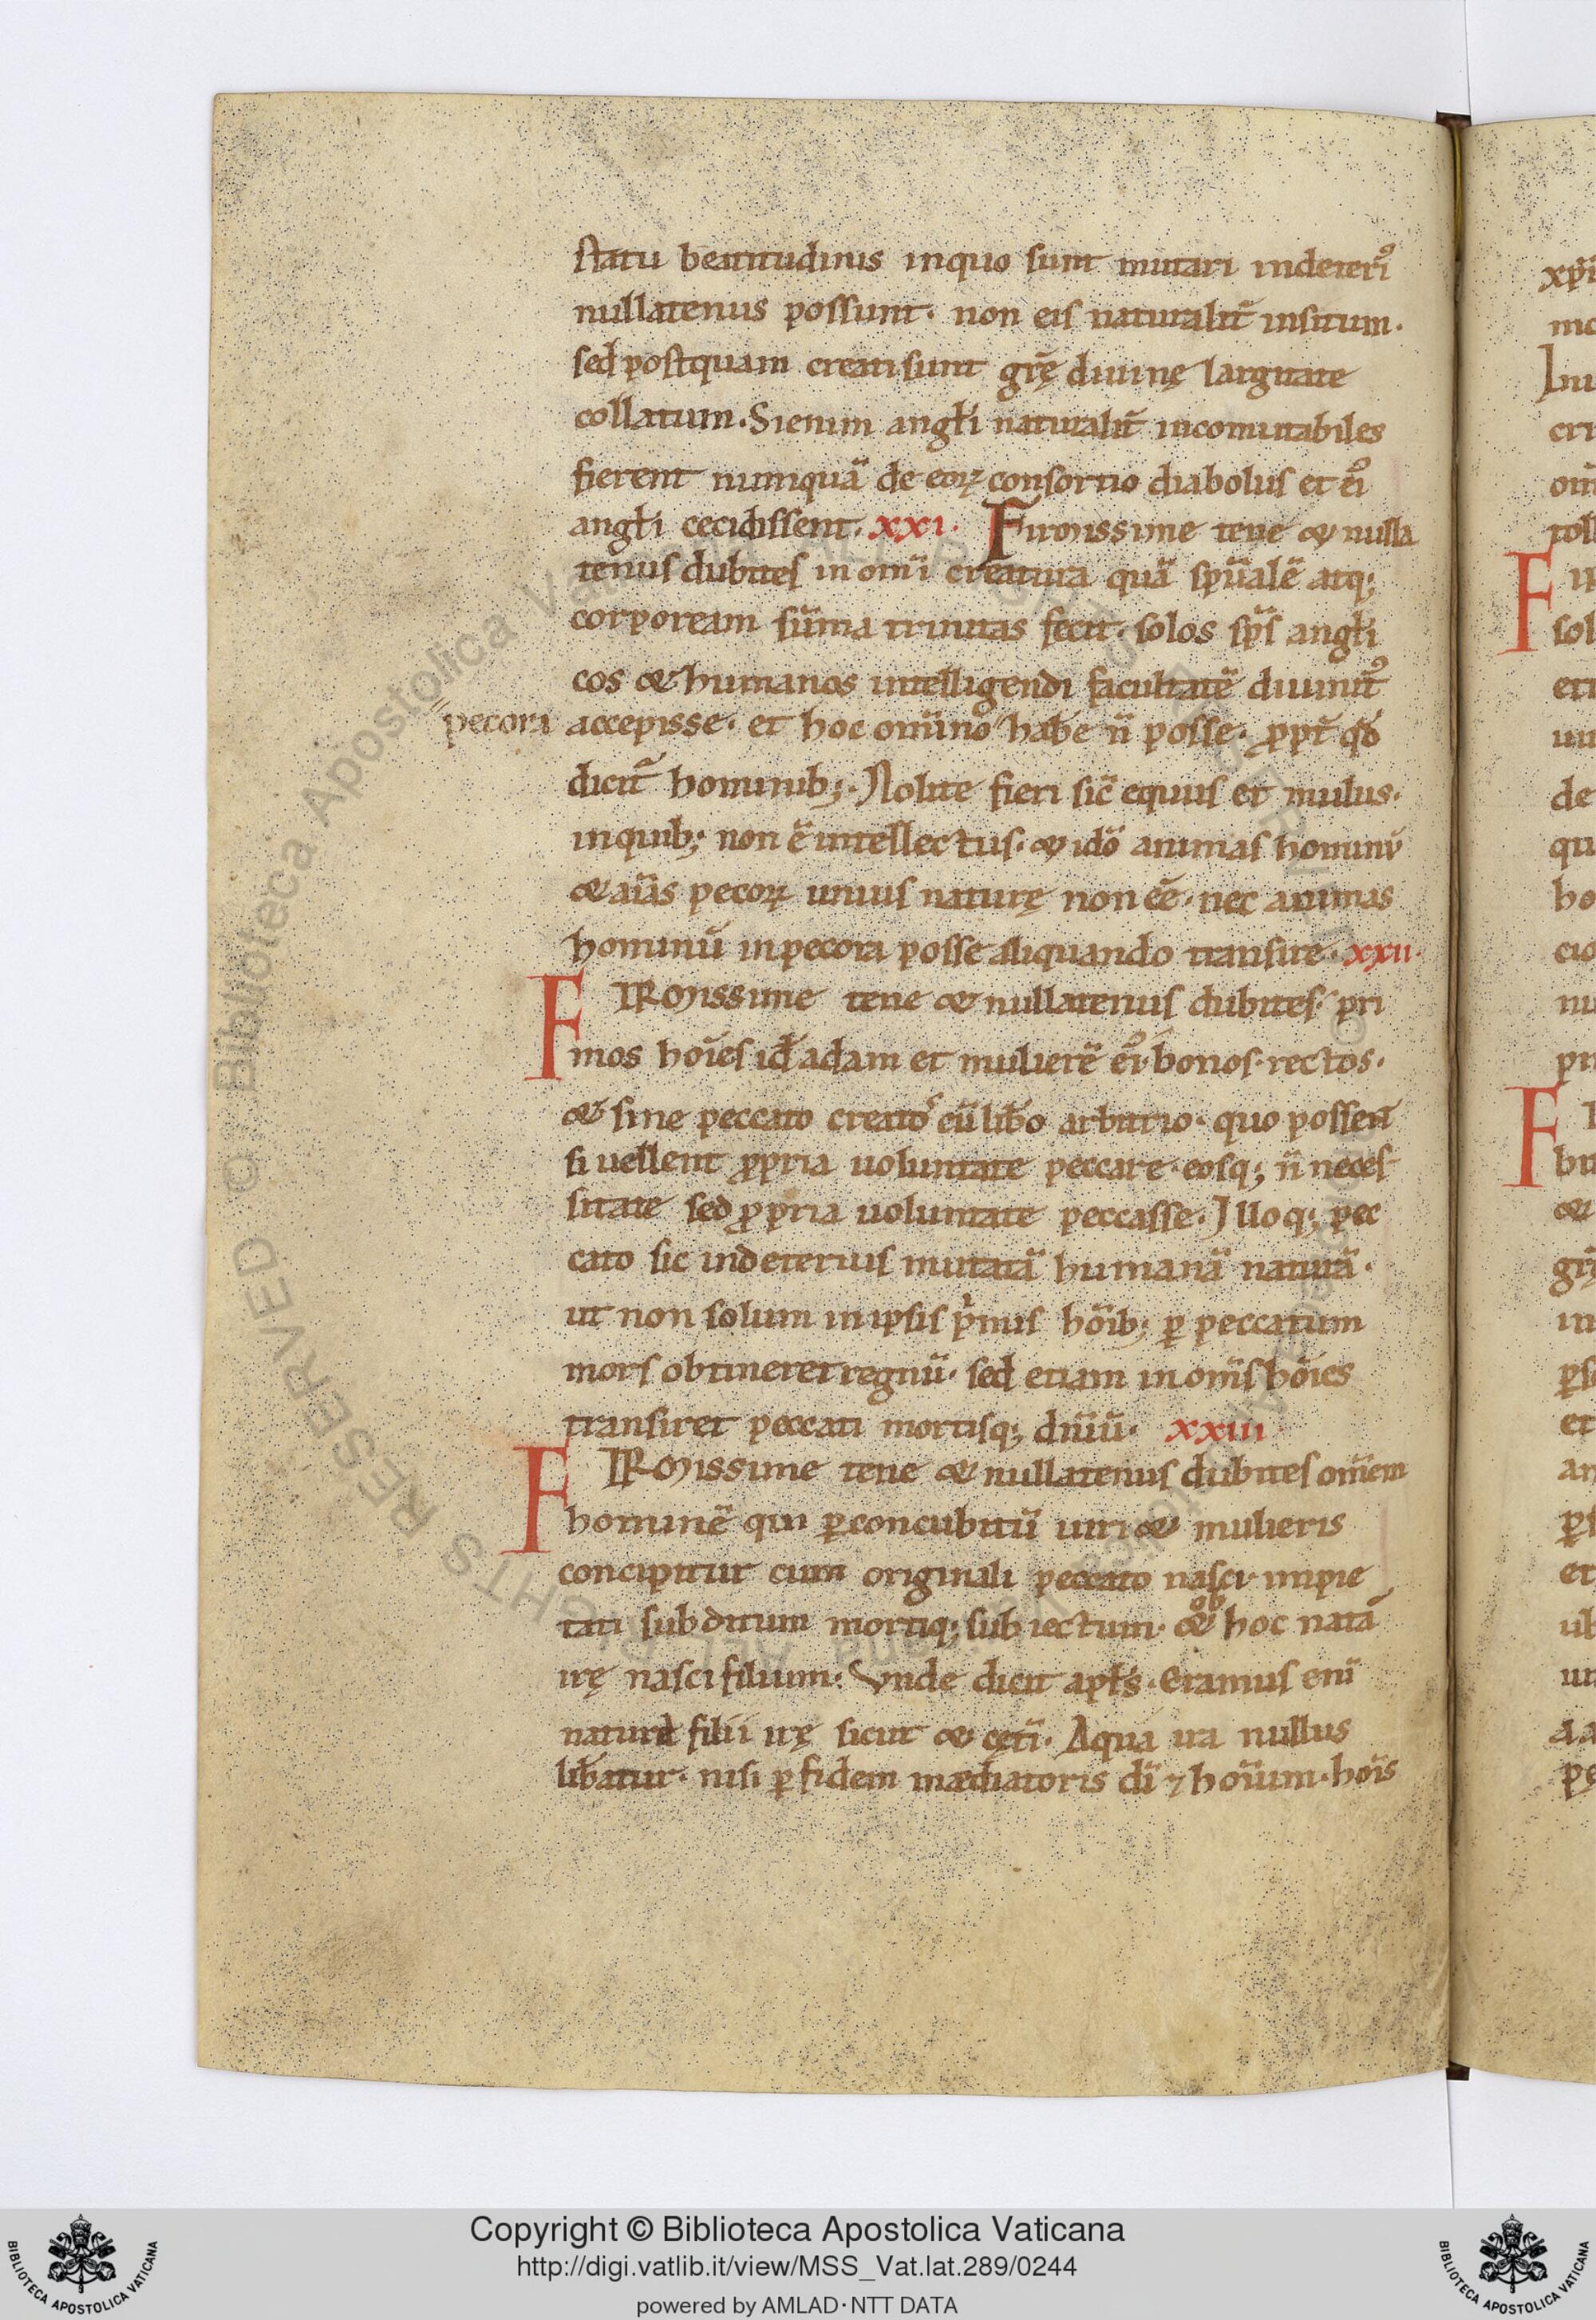 statu beatitudinis inquo sunt mutari indeteri᷒
nullatenus possunt· non eis naturalit̄ insitum·
sed postquam creati sunt grę̄ diuinę largitate
collatum. Si enim angłi naturalit̄ incomutabiles
fierent numquā de eoꝝ consortio diabolus et ei᷒
angłi cecidissent. xxi. Firmissime tene & nulla
tenus dubites in om̄i creatura quā sp̄ualē atq;
corpoream sūma trinitas fecit· solos sp̄s angłi
cos & humanos intelligendi facultatē diuinit᷒
pecora accepisse· et hoc om̄ino habe n̄ posse· ꝓpt̄ qđ
dicit᷒ hominib;· Nolite fieri sic̄ equus et mulus·
inquib; non ē intellectus· & idō animas hominū
& aīas pecoꝝ unius naturę non eē· nec animas
hominū in pecora posse aliquando transire· xxii·
FIRMissime tene & nullatenus dubites· pri
mos hoīes id̄ adam et mulierē ei᷒· bonos· rectos·
& sine peccato creatos cū lib̄o arbitrio· quo possent̄
si uellent ꝓpria uoluntate peccare· eosq; n̄ neces
sitate sed ꝓpria uoluntate peccasse. Illoq; pec
cato sic indeterius mutatā humanā naturā·
ut non solum in ipsis pͥmis hōib; ꝑ peccatum
mors obtineret regnū· sed etiam in om̄s hōies
transiret peccati mortisq; dn̄iū· xxiii
FIRMissime tene & nullatenus dubites om̄em
hominē qui ꝑ concubitū uiri & mulieris
concipitur cum originali peccato nasci· impie
tati subditum mortiq; subiectum· & ob hoc natā
irę nasci filium· Vnde dicit apłs· Eramus enī
natura filii irę sicut & cęt̄i· A qua ira nullus
lib̄atur· nisi ꝑ fidem mædiatoris dī ⁊ hoīum· hoīs
Copyright © Biblioteca Apostolica Vaticana
http://digi.vatlib.it/view/MSS_Vat.lat.289/0244
powered by AMLAD·NTT DATA
BIBLIOTECA APOSTOLICA VATICANA
BIBLIOTECA APOSTOLICA VATICANA